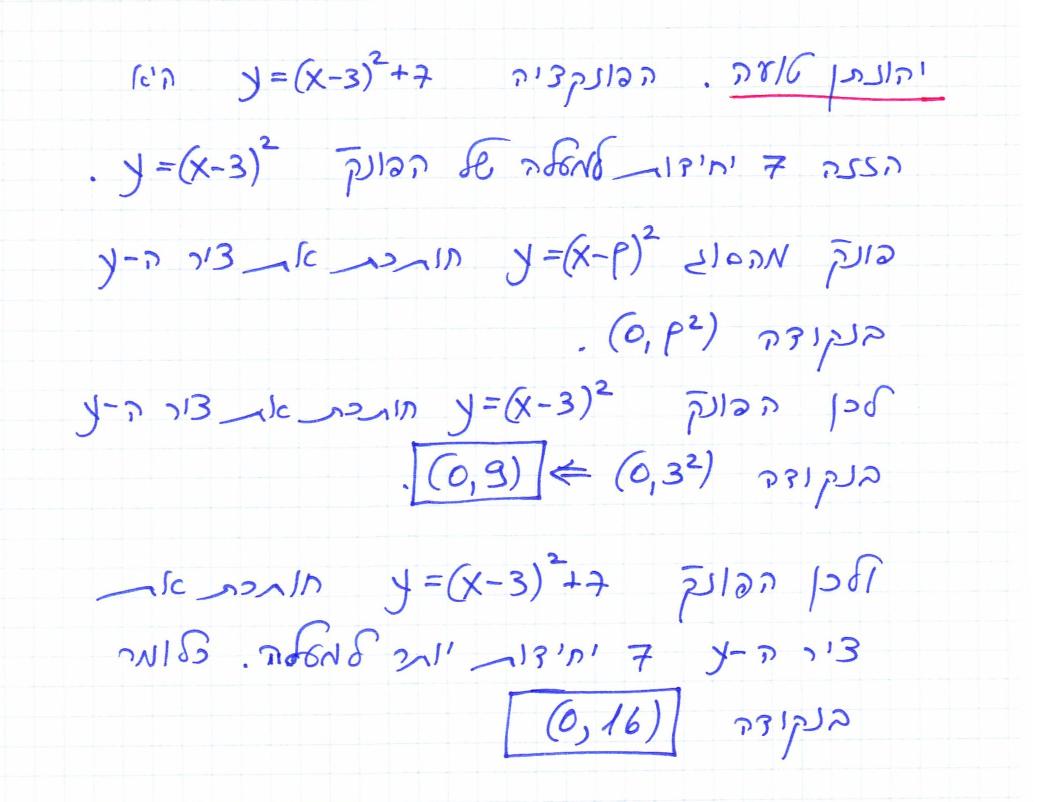 יהונתן טועה. הפונקציה y=(x-3)²+7 היא
הזזה 7 יחידות למעלה של הפונק' y=(x-3)².
פונק' מהסוג y=(x-p)² חותכת את ציר ה-y
בנקודה (0,p²).
לכן הפונק' y=(x-3)² חותכת את ציר ה-y
בנקודה (0,3²) ⇐ (0,9).
ולכן הפונק' y=(x-3)²+7 חותכת את
ציר ה-y 7 יחידות יותר למעלה. כלומר
בנקודה (0,16)